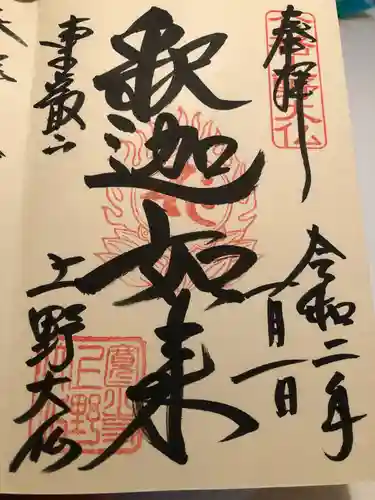 奉拝
令和二年
一月一日
釈迦如来
東叡山
上野大仏